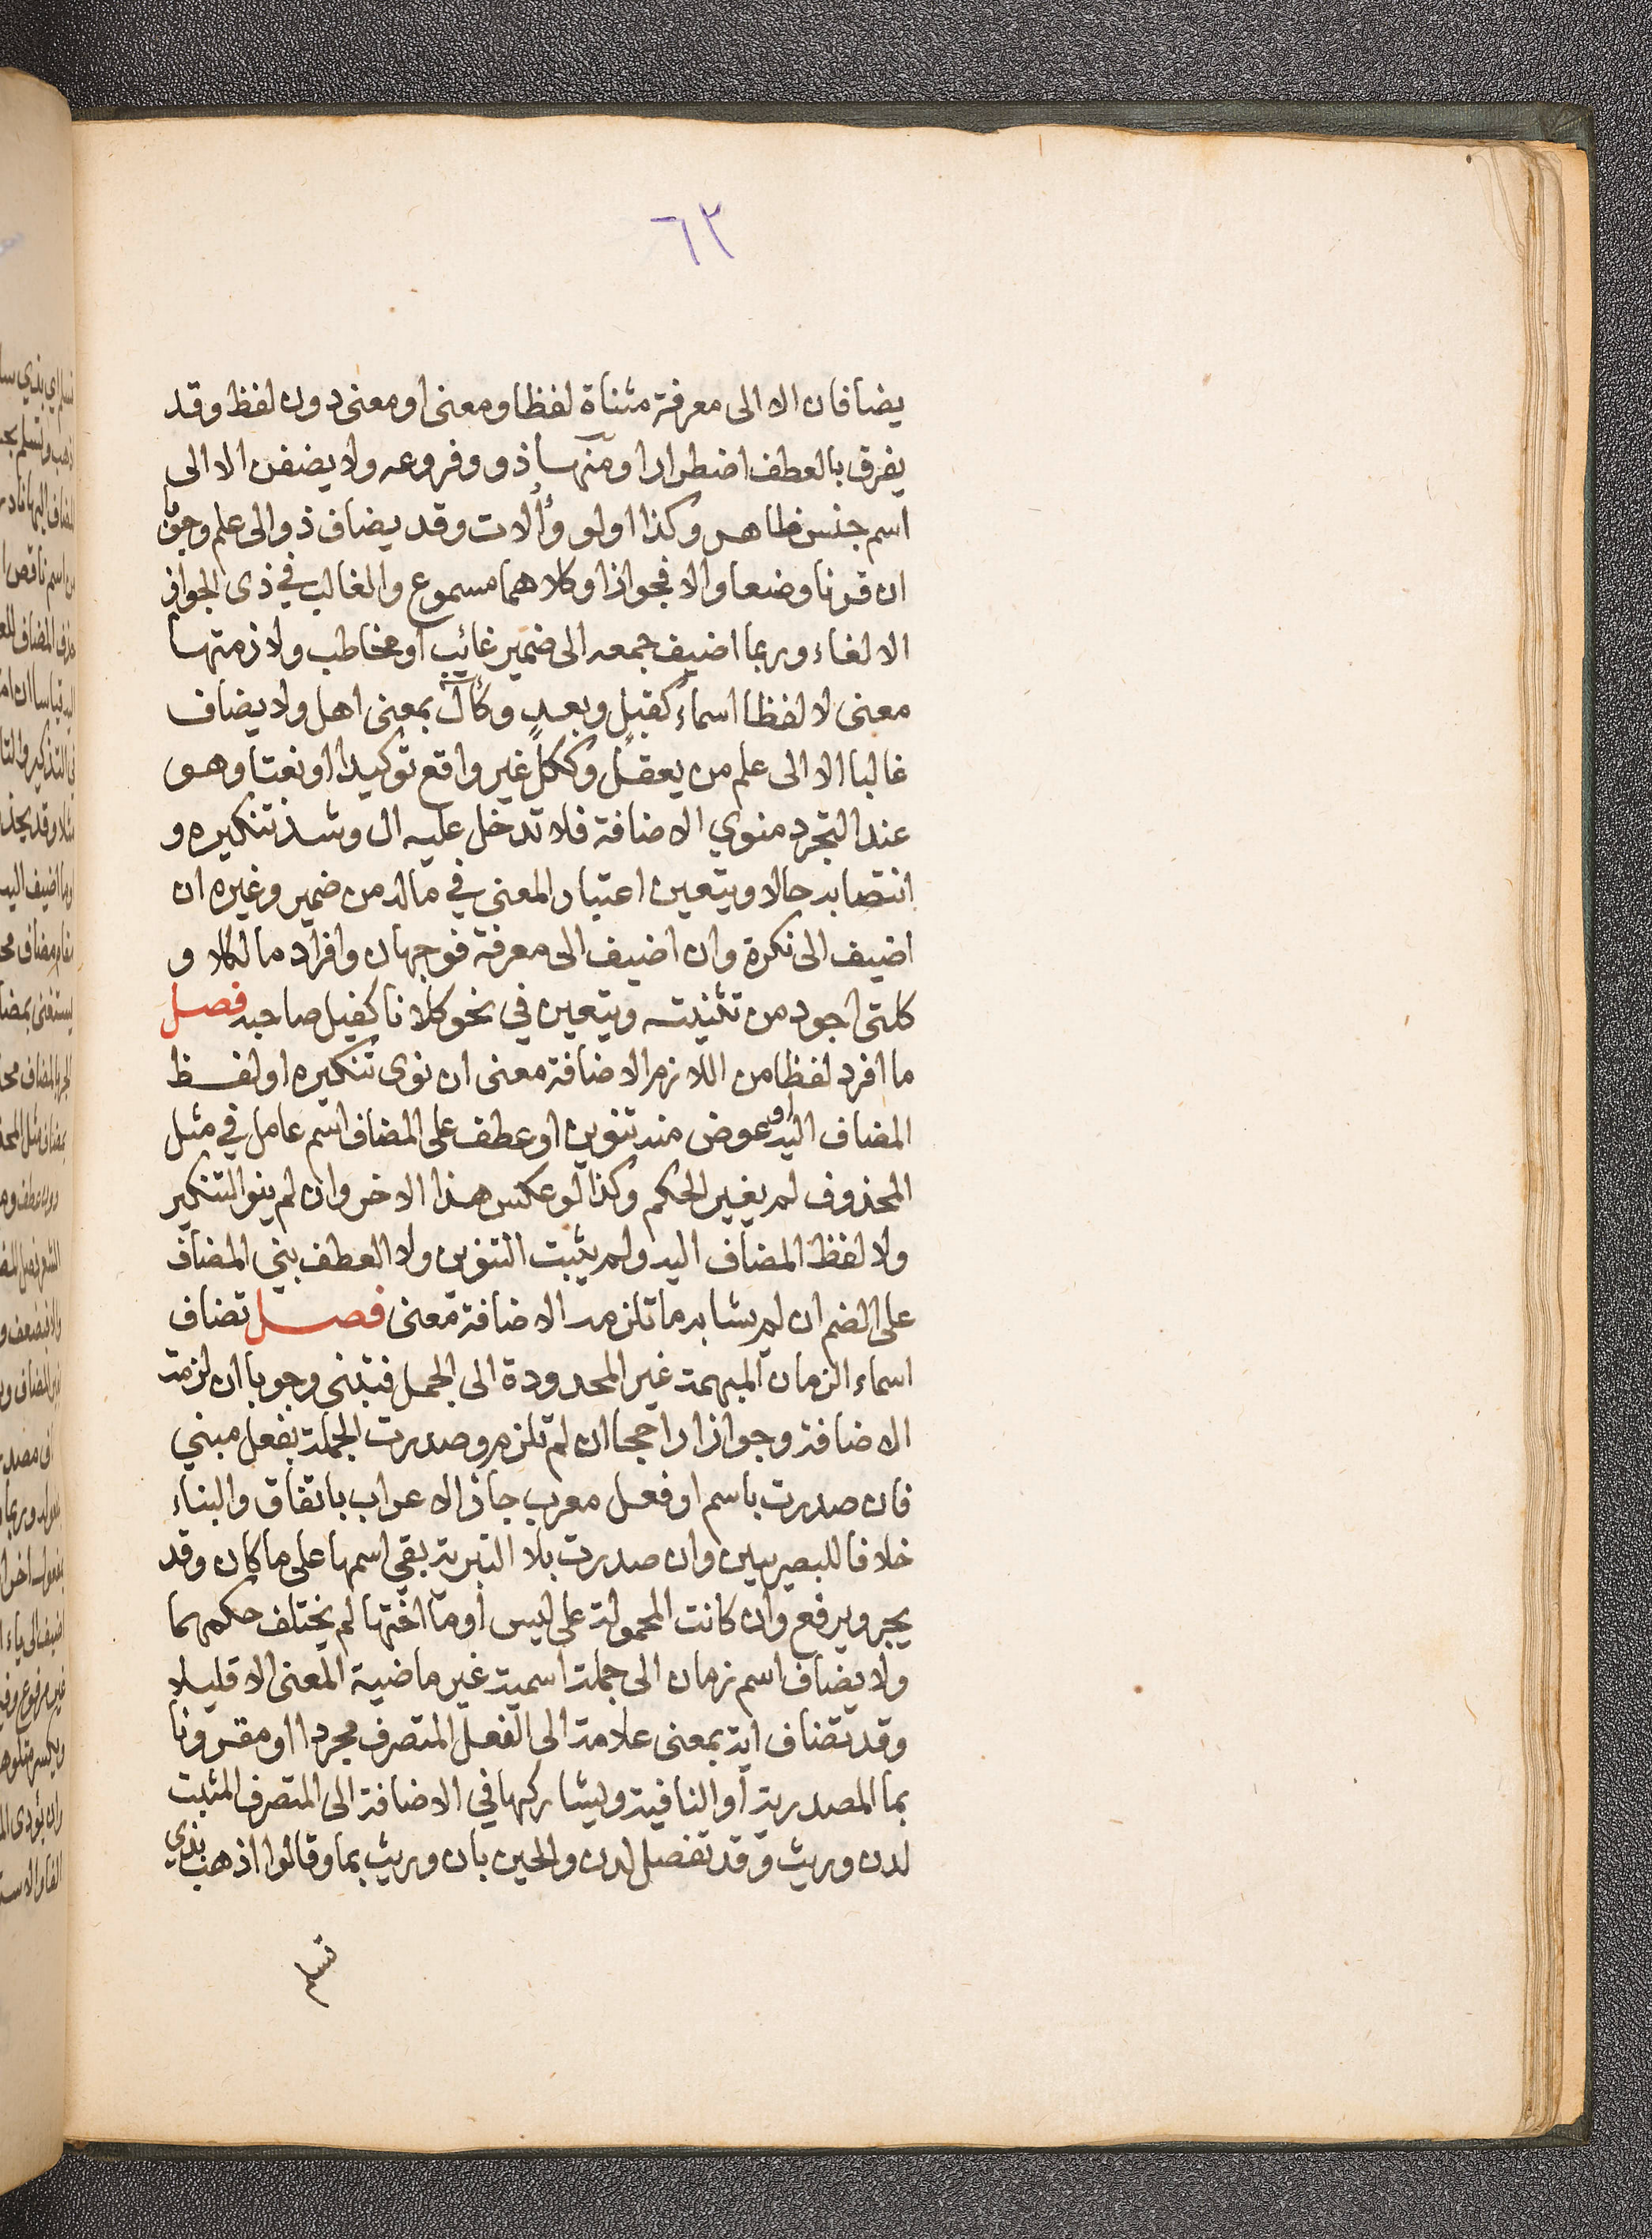 ٦٢
يضافان الا الى معرفة مثناة لفظا ومعنى او معنى دون لفظ وقد
يفرق بالعطف اضطرارا ومنها ذو وفروعه ولا يضفن الا الى
اسم جنس ظاهر وكذا اولو وأُلات وقد يضاف ذو الى علم وجوبا
ان قرنا وضعا والا فجوازا وكلاهما مسموع والغالب في ذى الجواز
الالغاء وربما اضيف جمعه الى ضمير غائب او مخاطب ولازمتها
معنى لا لفظا اسماء كقبلٍ وبعدٍ وكآلٍ بمعنى اهل ولا يضاف
غالبا الا الى علم من يعقل وككلٍ غير واقع توكيدا او نعتا وهو
عند التجرد منوي الاضافة فلا تدخل عليه ال وشذ تنكيره و
انتصابه حالا ويتعين اعتبار المعنى في ماله من ضمير وغيره ان
اضيف الى نكرة وان اضيف الى معرفة فوجهان وافراد ما لكلا و
كلتى اجود من تثنيته ويتعين في نحو كلانا كفيل صاحبه فصل
ما افرد لفظا من اللازم الاضافة معنى ان نوى تنكيره او لفظ
المضاف اليه او عوض منه تنوين او عطف على المضاف اسم عامل في مثل
المحذوف لم يغير الحكم وكذا لو عكس هذا الاخر وان لم ينو التنكير
ولا لفظ المضاف اليه ولم يثبت التنوين ولا العطف بني المضاف
على الضم ان لم يشابه ما تلزمه الاضافة معنى فصل تضاف
اسماء الزمان المبهمة غير المحدودة الى الجمل فتبنى وجوبا ان لزمت
الاضافة وجوازا راجحا ان لم تلزم وصدرت الجملة بفعل مبني
فان صدرت باسم او فعل معرب جاز الاعراب باتفاق والبناء
خلافا للبصريين وان صدرت بلا التبرية بقي اسمها على ما كان وقد
يجر ويرفع وان كانت المحمولة على ليس او ما اختها لم يختلف حكمهما
ولا يضاف اسم زمان الى جملة اسمية غير ماضية المعنى الا قليلا
وقد تضاف اية بمعنى علامة الى الفعل المتصرف مجردا او مقرونا
بما المصدرية او النافية ويشاركها في الاضافة الى المتصرف المثبت
لدن وريث وقد تفصل لدن والحين بان وريث بما وقالوا اذهب بذي
تسلم